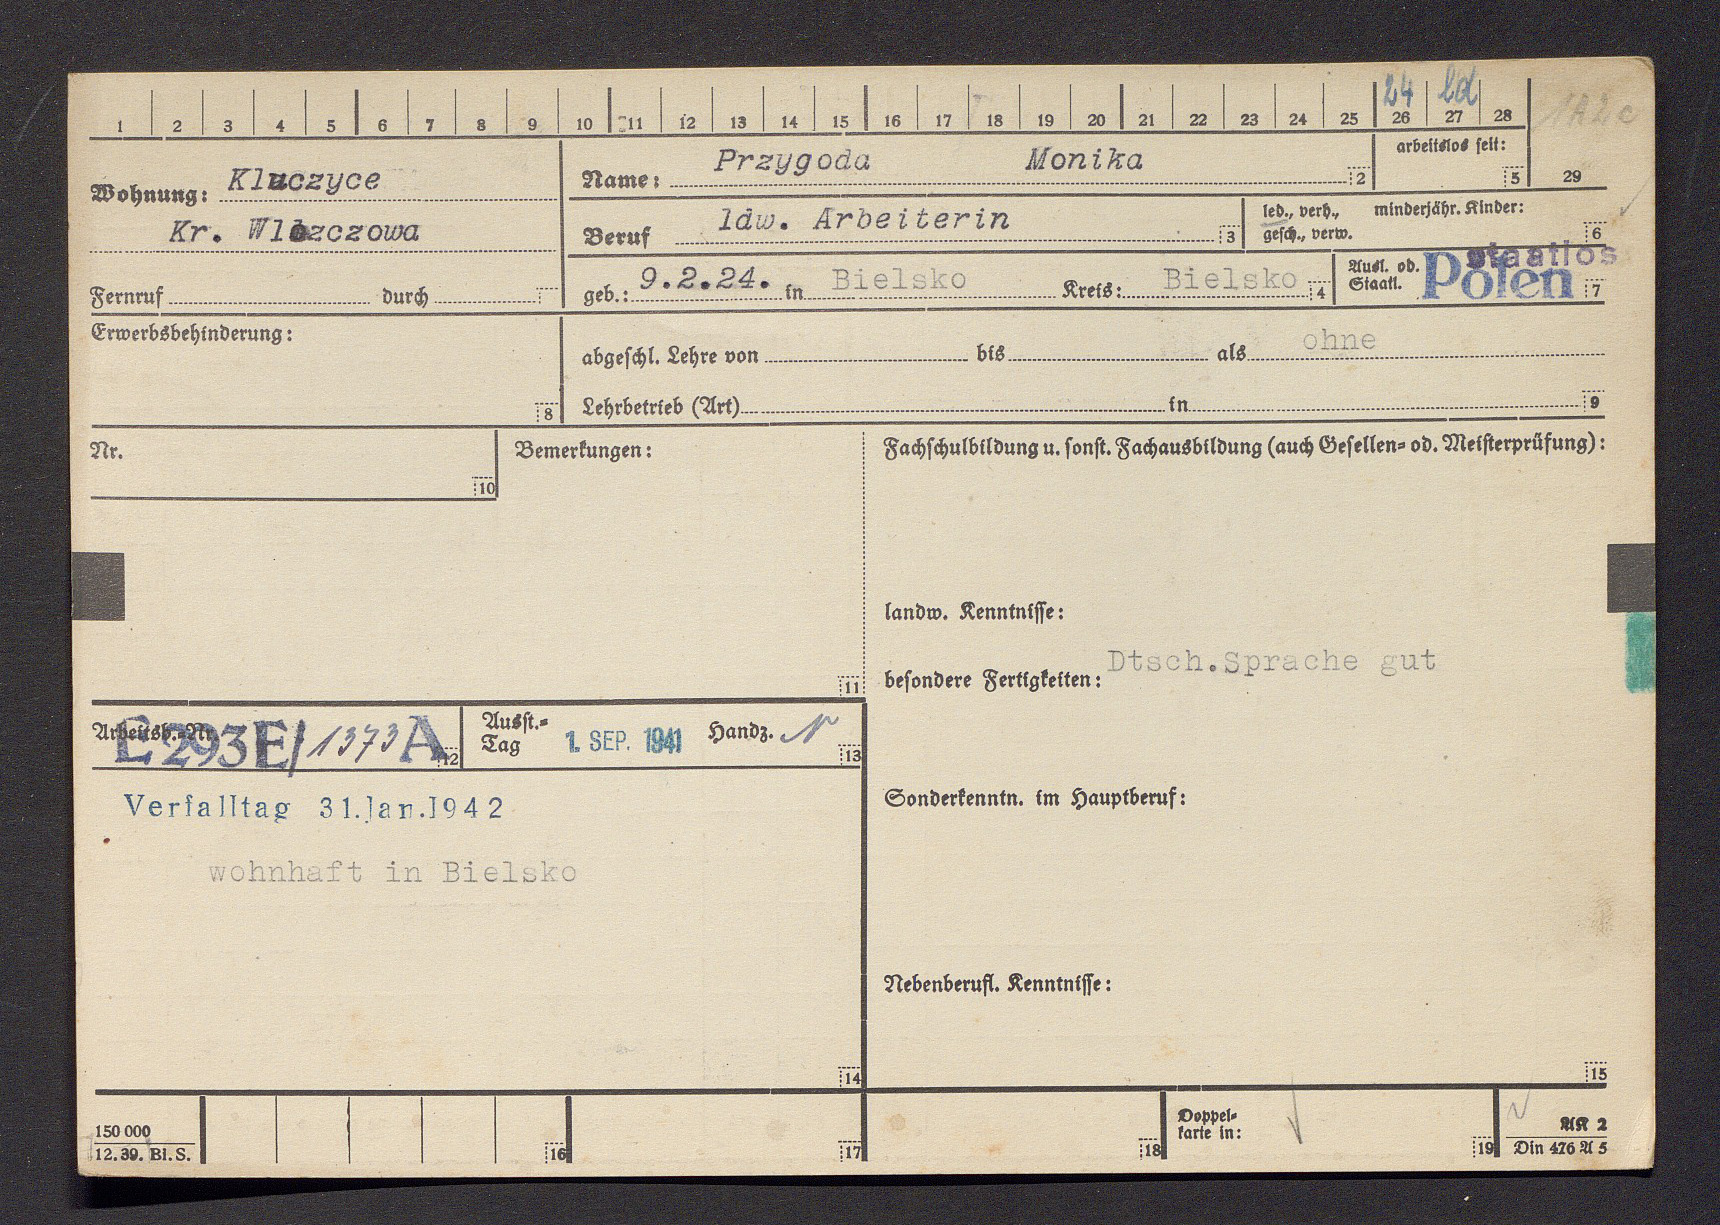 24 ld
1 2 3 4 5 6 7 8 9 10 11 12 13 14 15 16 17 18 19 20 21 22 23 24 25 26 27 28
1A2c
Wohnung: Kluczyce
Kr. Wlozczowa
Fernruf durch
Name: Przygoda Monika 2
arbeitslos seit: 5
29
Beruf ldw. Arbeiterin 3
led., verh., minderjähr. Kinder:
gesch., verw. 6
geb.: 9.2.24. in Bielsko Kreis: Bielsko 4
Ausl. od.
Staatl. 7
staatlos
Polen
Erwerbsbehinderung:
8
abgeschl. Lehre von bis als ohne
Lehrbetrieb (Art) in 9
Nr.
10
Bemerkungen:
11
Fachschulbildung u. sonst. Fachausbildung (auch Gesellen- od. Meisterprüfung):
landw. Kenntnisse:
besondere Fertigkeiten: Dtsch.Sprache gut
Sonderkenntn. im Hauptberuf:
Nebenberufl. Kenntnisse:
15
Arbeitsb.-Nr. E293E/1373A 12
Ausst.-
Tag 1. SEP. 1941 Handz. 13
Verfalltag 31.Jan.1942
wohnhaft in Bielsko
14
150 000
12. 39. Bl. S.
16
17
18
Doppel-
karte in:
19
AK 2
Din 476 A 5